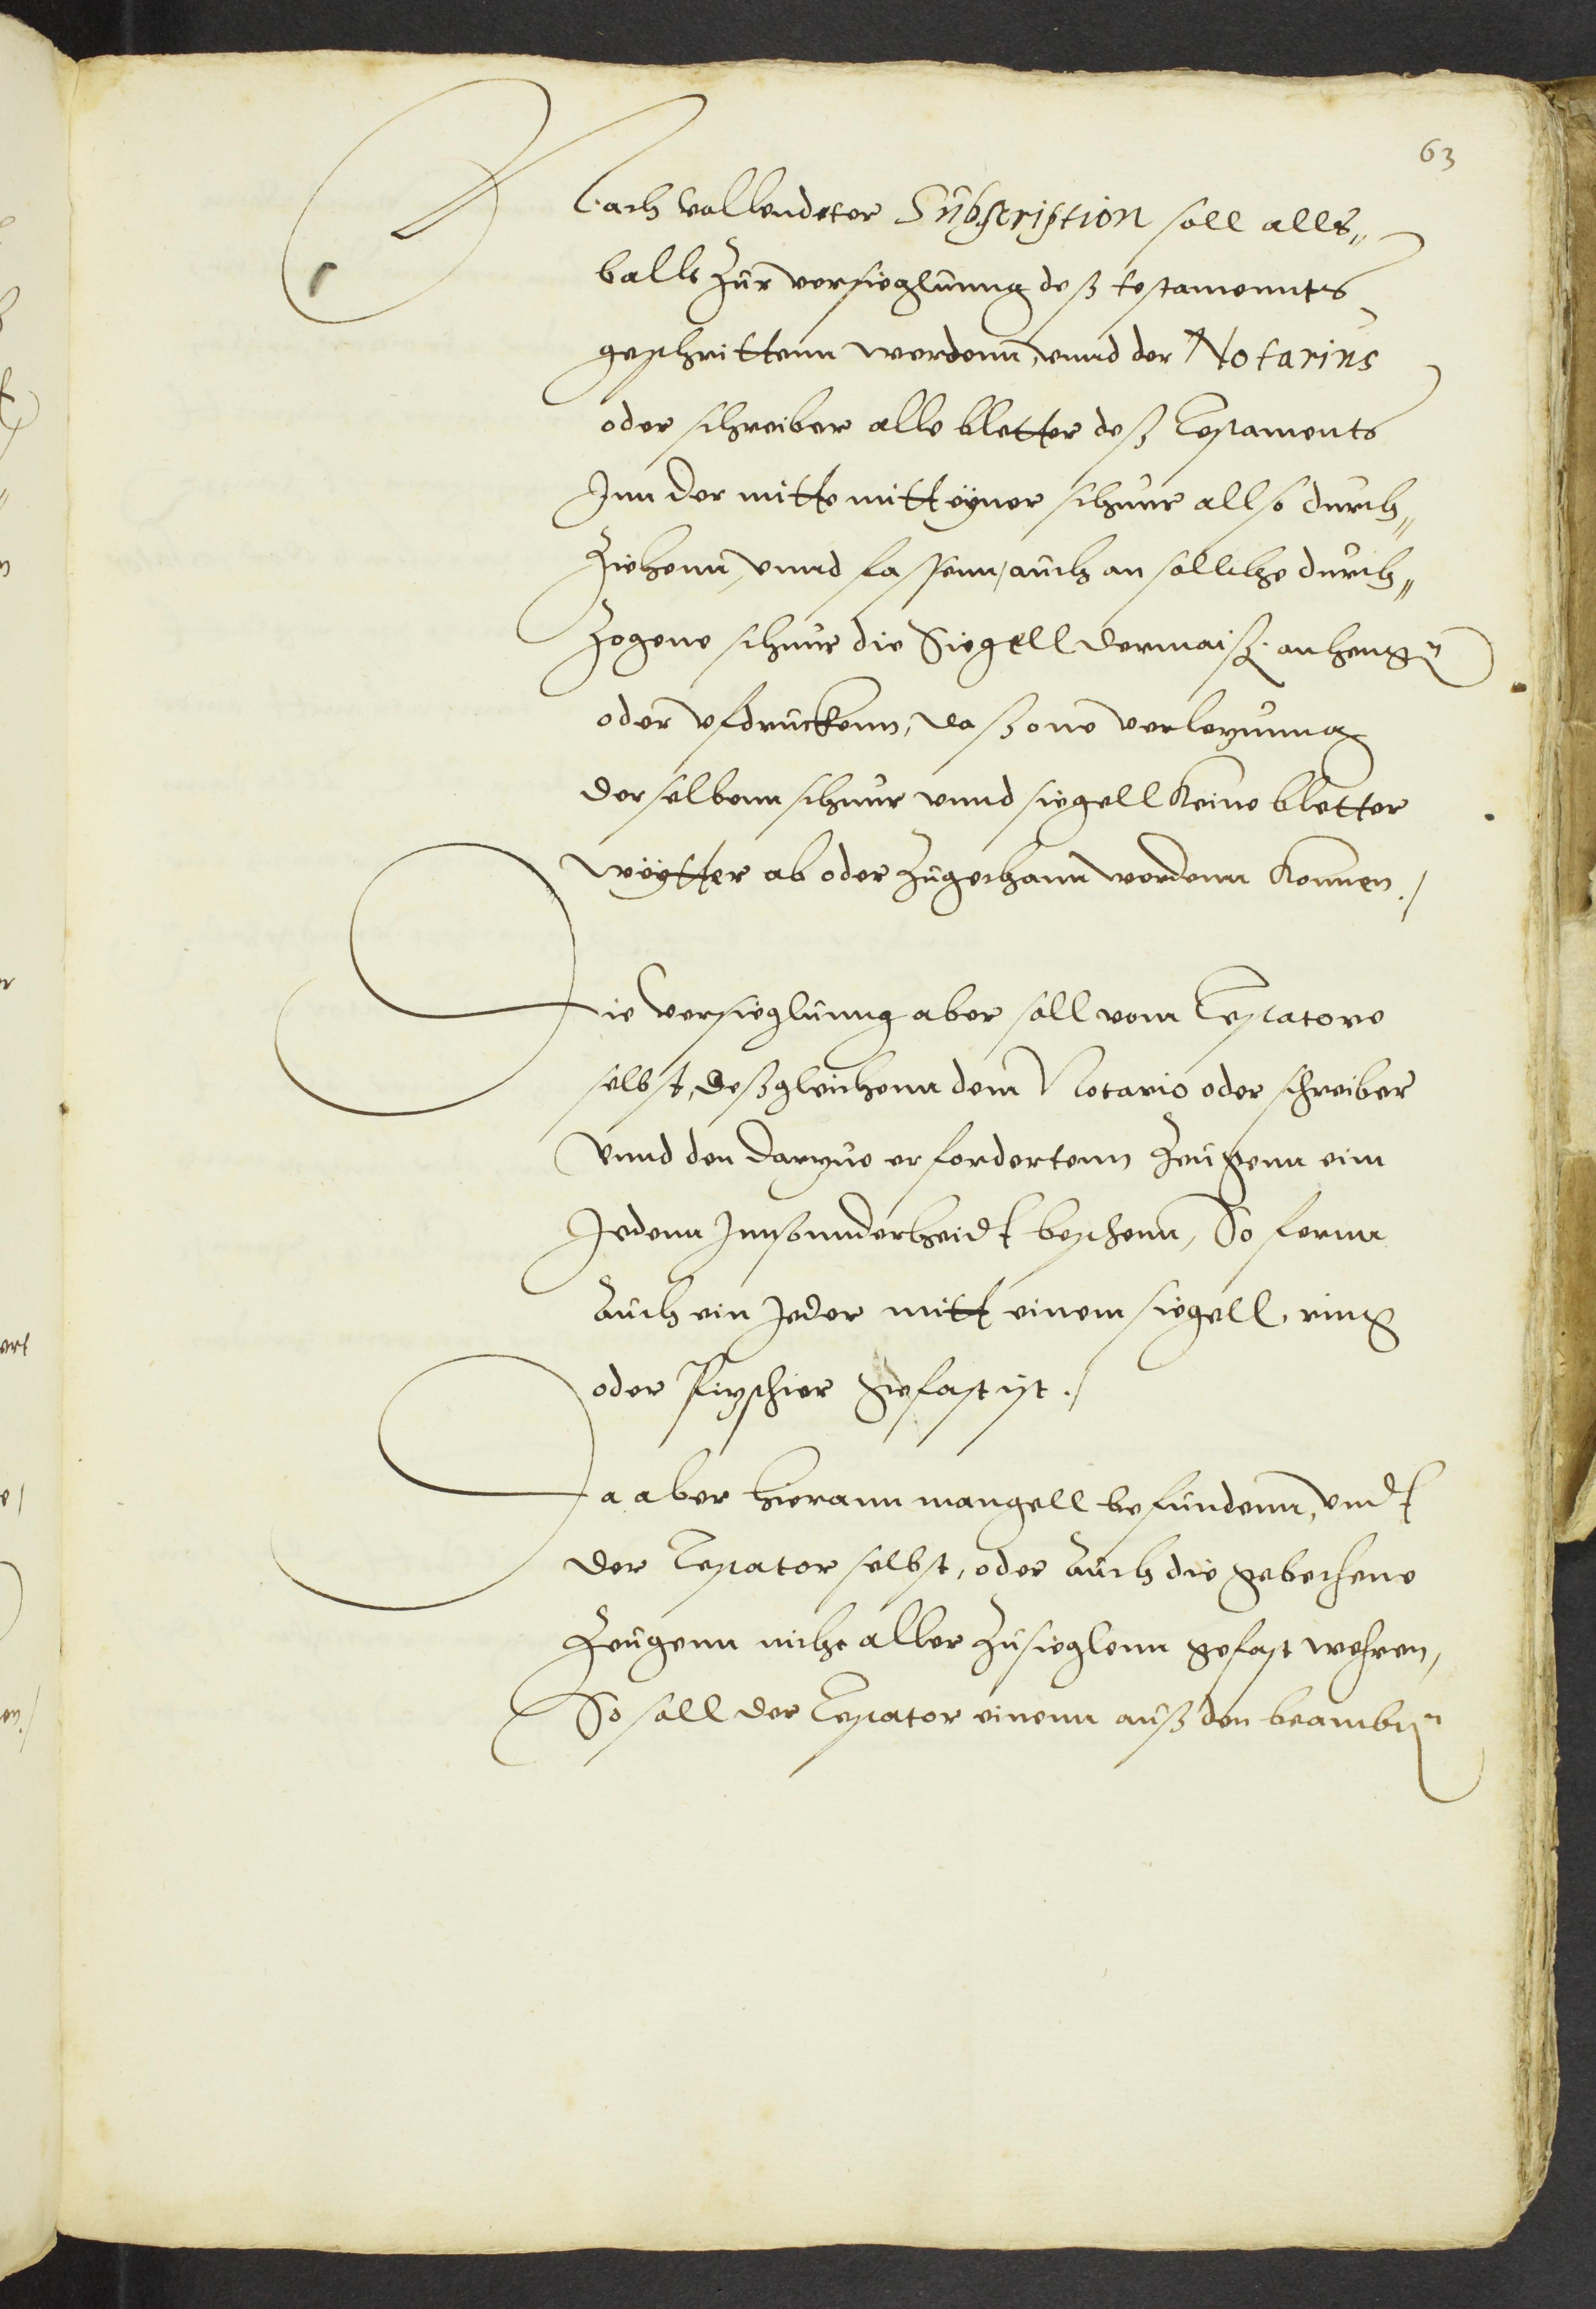 63
Nach vollendeter Subscription soll alls„
balls zur versieglunng deß testamennts
geschrittenn werdenn, vnnd der Notarius
oder schreiber alle bletter deß Testaments
Inn der mitte mitt eyner schnur allso durch„
ziehenn, vnnd fassenn, auch an sollche durch„
zogene schnur die Siegell dermaiß. anheng̃
oder vfdruckenn, daß one verlezunng
derselbenn schnur vnnd siegell keine bletter
weytter ab oder zugethann werdenn konnen./
Die versieglunng aber soll vom Testatore
selbst, deßgleichenn dem Notario oder schreiber
vnnd den darzue erfordertenn Zeugenn eim
Jedenn Innsonnderheidt beschenn, So fernn
auch ein Jeder mitt einem siegell, ring
oder Pizschier gefast ist./
Da aber hierann mangell befundenn, vndt
der Testator selbst, oder auch die gebethene
Zeugenn nicht aller zusieglenn gefast wehren,
So soll der Testator einenn auß den beambt̃